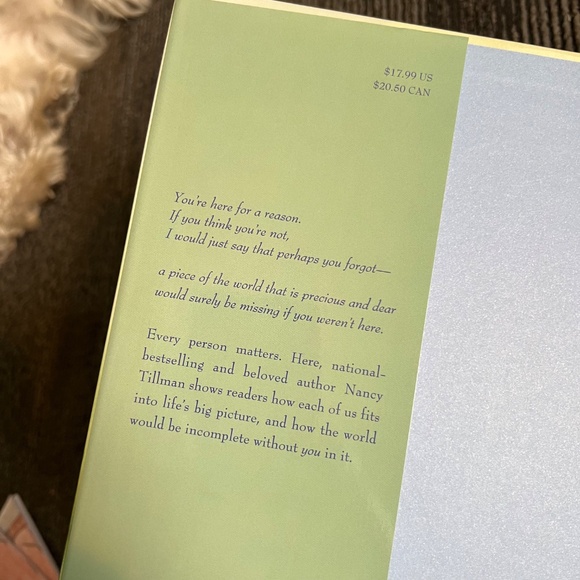 $17.99 US
$20.50 CAN
You're here for a reason.
If you think you're not,
I would just say that perhaps you forgot—
a piece of the world that is precious and dear
would surely be missing if you weren't here.
Every person matters. Here, national-
bestselling and beloved author Nancy
Tillman shows readers how each of us fits
into life's big picture, and how the world
would be incomplete without you in it.